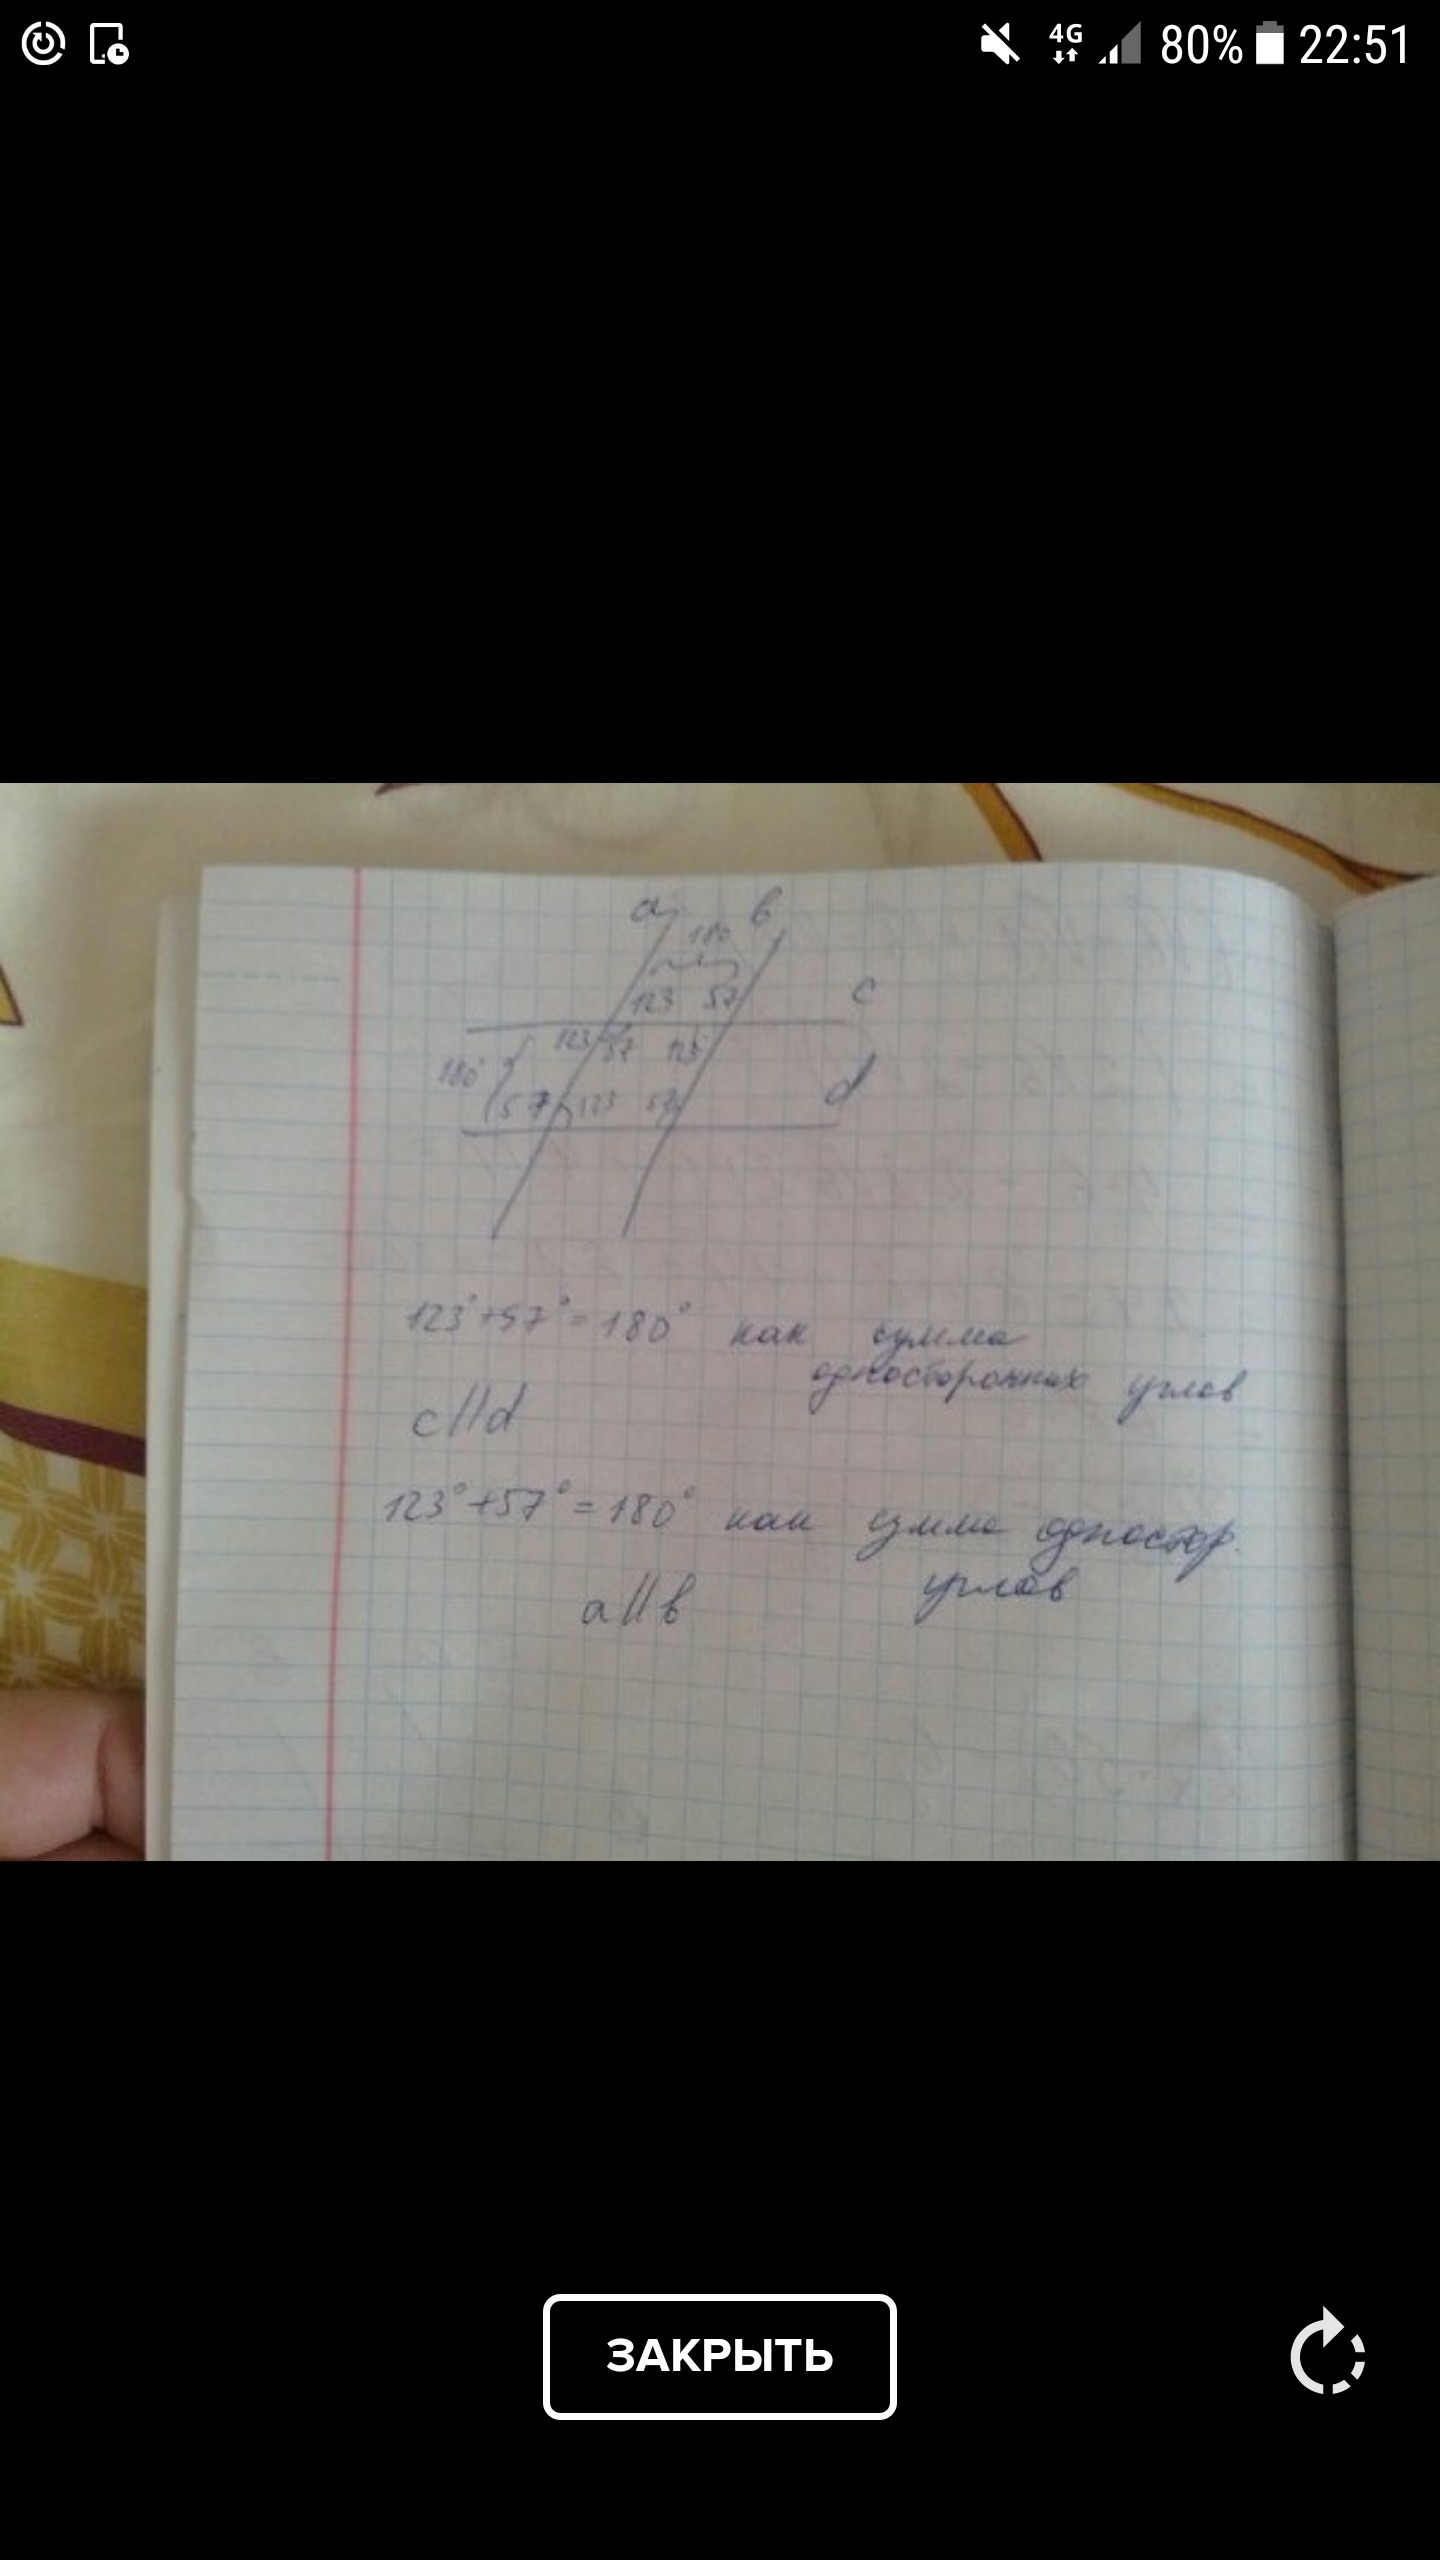 4G 80% 22:51
a b
180
123 57
c
123 57 123
180°
57 123 57
d
123°+57°=180° как сумма
односторонних углов
c||d
123°+57°=180° как сумма одностор.
углов
a||b
ЗАКРЫТЬ